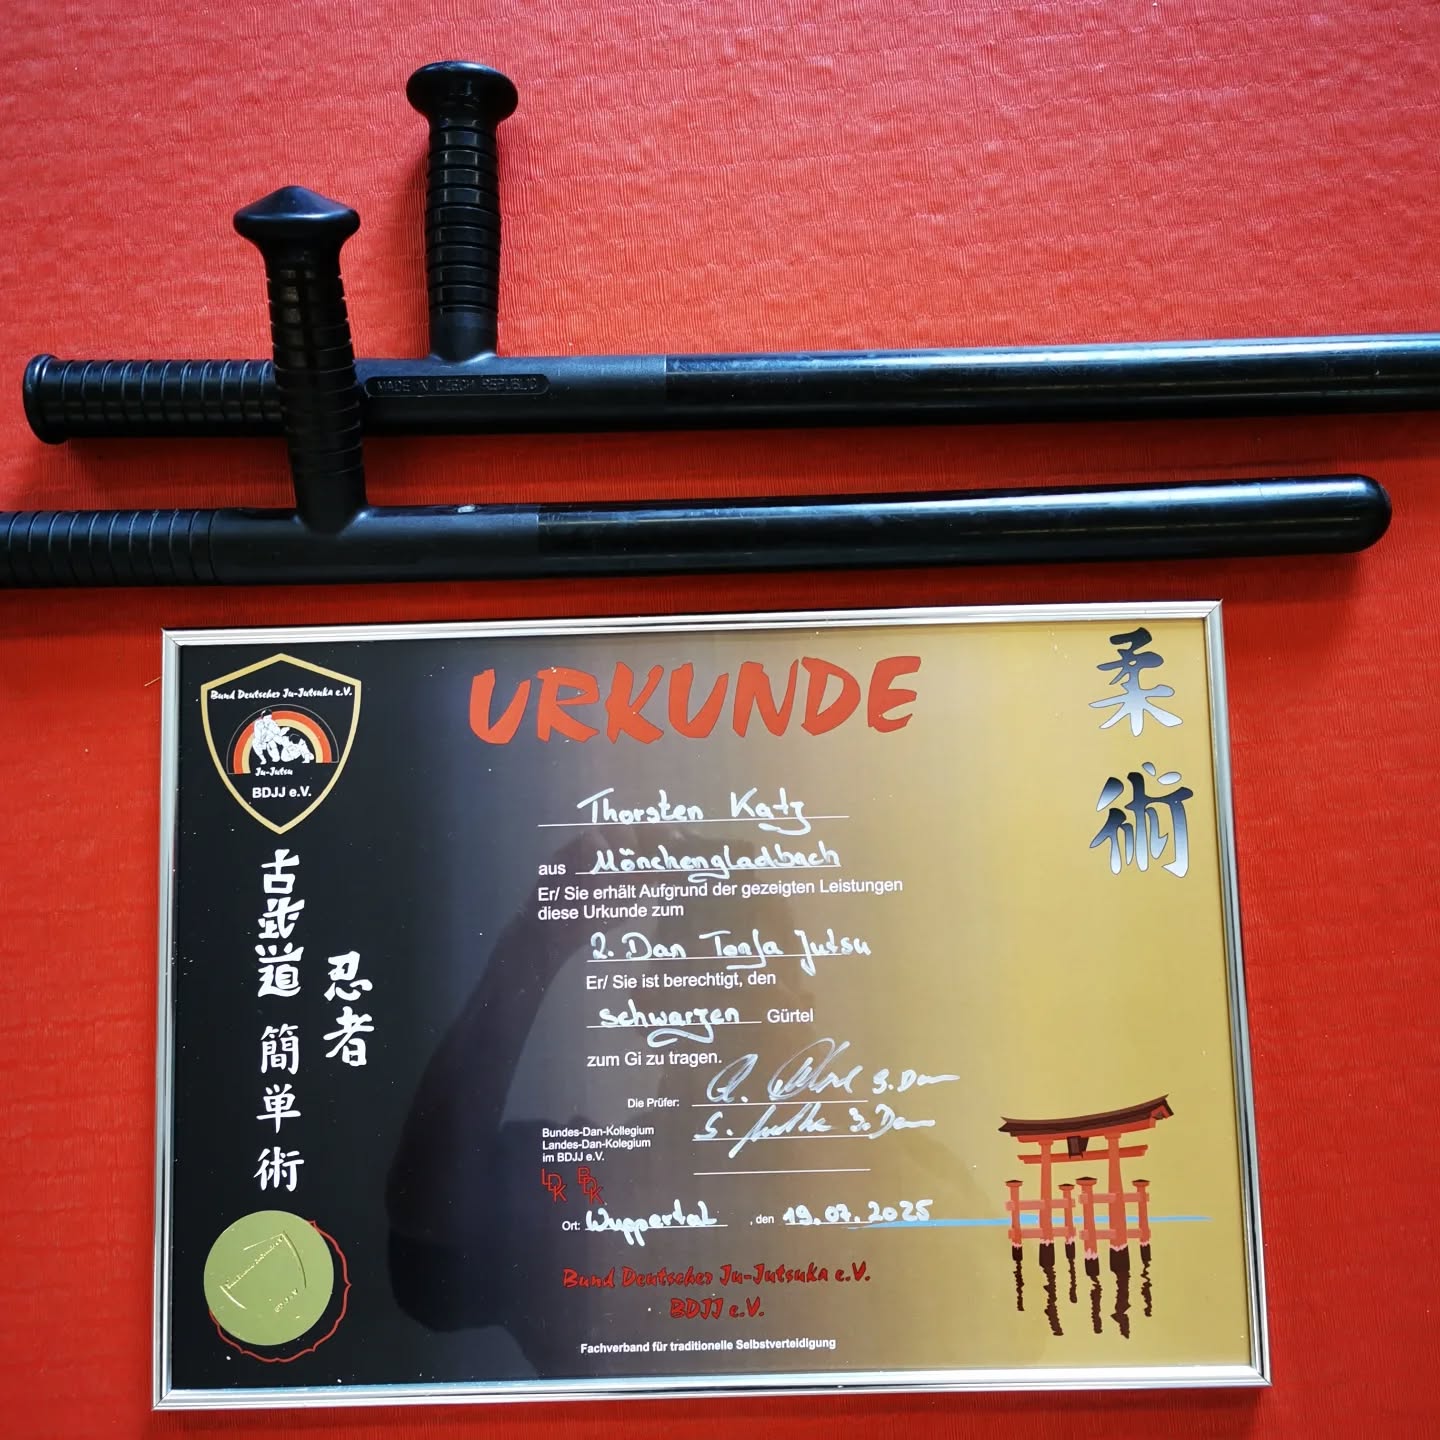 MADE IN CZECH REPUBLIC
URKUNDE
Bund Deutscher Ju-Jutsuka e.V.
Ju-Jutsu
BDJJ e.V.
柔術
古武道 簡単術
忍者
Thorsten Katz
aus Mönchengladbach
Er/ Sie erhält Aufgrund der gezeigten Leistungen
diese Urkunde zum
2. Dan Tonfa Jutsu
Er/ Sie ist berechtigt, den
schwarzen Gürtel
zum Gi zu tragen.
Die Prüfer:
3. Dan
Bundes-Dan-Kollegium
Landes-Dan-Kolegium
im BDJJ e.V.
LDK BDK
Ort: Wuppertal , den 19.07.2025
Bund Deutscher Ju-Jutsuka e.V.
BDJJ e.V.
Fachverband für traditionelle Selbstverteidigung